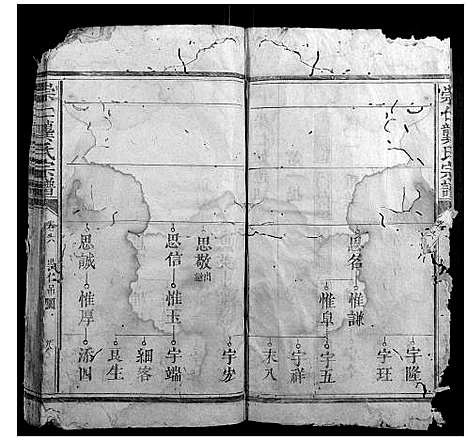 崇仁龔氏宗譜
思名
惟謙
惟阜
宇隆
宇玨
宇五
宇祥
夫八
思敬
思信
思誠
惟玉
惟厚
宇端
細客
艮生
添四
崇仁龔氏宗譜